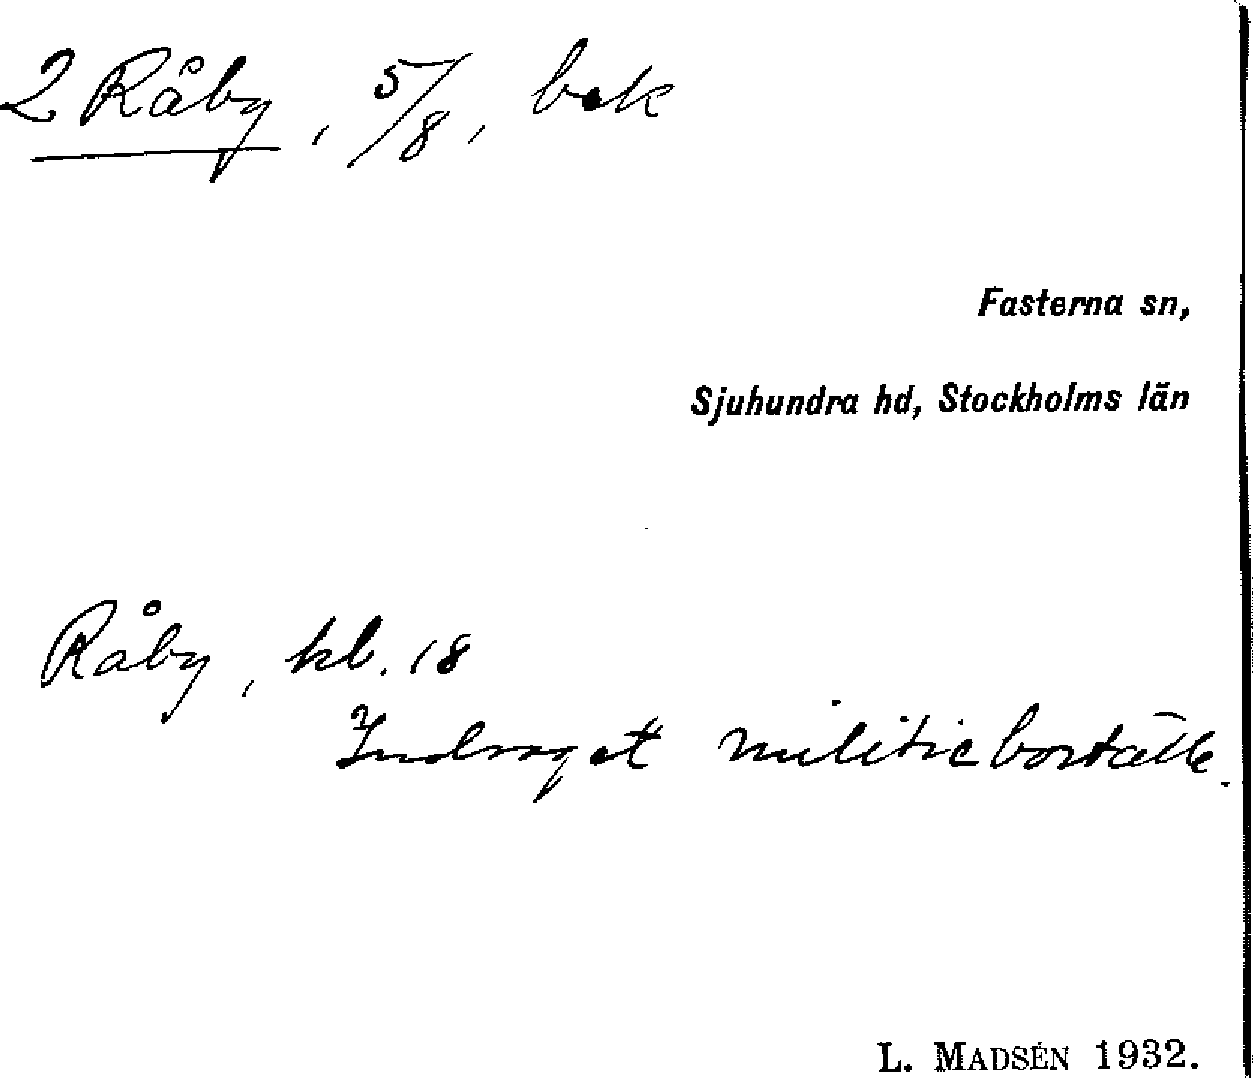 2 Råby, 5/8, bok
Fasterna sn,
Sjuhundra hd, Stockholms län
Råby, kl. 18
Indraget militieboställe.
L. MADSÉN 1932.